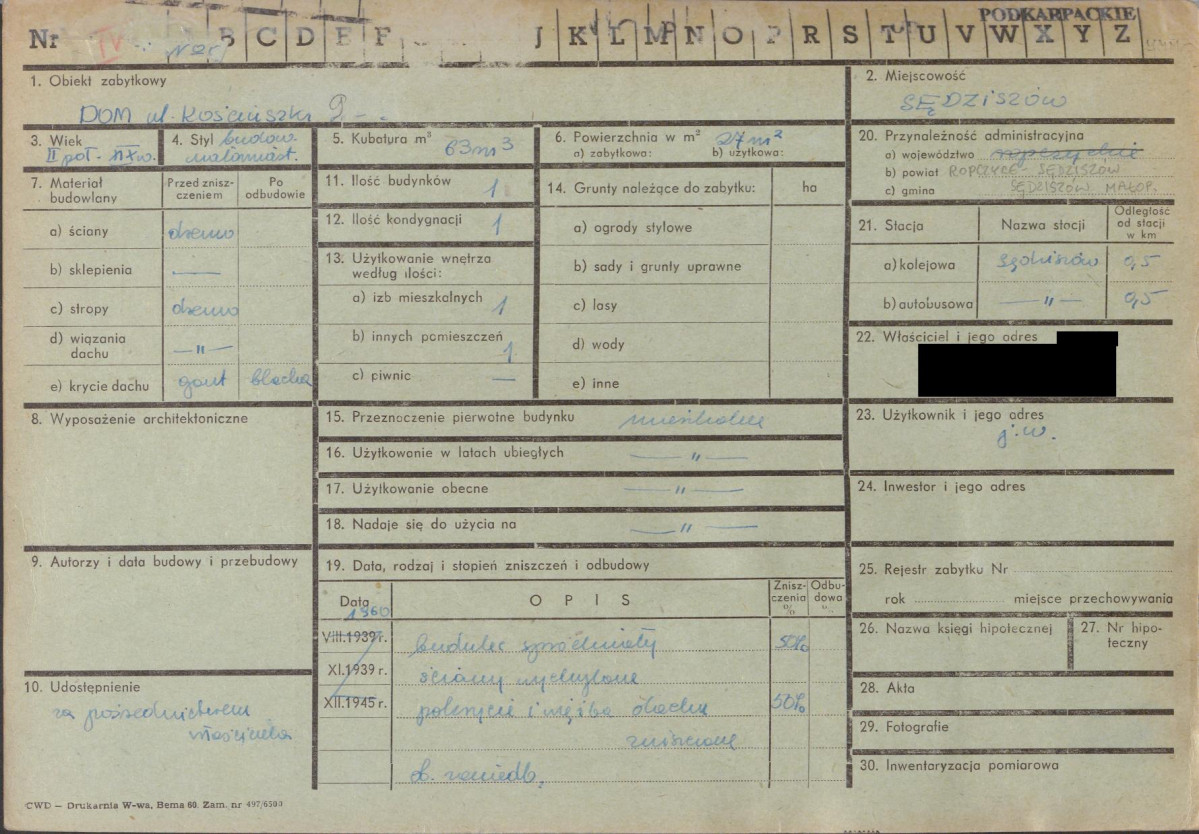 PODKARPACKIE
Nr TV N 25 B C D E F J K L M N O P R S T U V W X Y Z
1. Obiekt zabytkowy
DOM ul. Kościuszki 9
2. Miejscowość
SĘDZISZÓW
3. Wiek
II poł. XIX w.
4. Styl budow.
małomiast.
5. Kubatura m³ 63 m³
6. Powierzchnia w m² 27 m²
a) zabytkowa: b) użytkowa:
7. Materiał budowlany
Przed zniszczeniem
Po odbudowie
a) ściany drewno
b) sklepienia —
c) stropy drewno
d) wiązania dachu — " —
e) krycie dachu gont blacha
8. Wyposażenie architektoniczne
9. Autorzy i data budowy i przebudowy
10. Udostępnienie
za pośrednictwem
właściciela
11. Ilość budynków 1
12. Ilość kondygnacji 1
13. Użytkowanie wnętrza
według ilości:
a) izb mieszkalnych 1
b) innych pomieszczeń 1
c) piwnic —
14. Grunty należące do zabytku: ha
a) ogrody stylowe
b) sady i grunty uprawne
c) lasy
d) wody
e) inne
15. Przeznaczenie pierwotne budynku mieszkalne
16. Użytkowanie w latach ubiegłych — " —
17. Użytkowanie obecne — " —
18. Nadaje się do użycia na — " —
19. Data, rodzaj i stopień zniszczeń i odbudowy
Data OPIS Zniszczenia % Odbudowa %
1960
VIII.1939 r. budulec spróchniały 50%
XI.1939 r. ściany wychylone
XII.1945 r. pokrycie i więźba dachu 50%
zniszczone
ob. zaniedb.
20. Przynależność administracyjna
a) województwo
b) powiat ROPCZYCE - SĘDZISZÓW
c) gmina SĘDZISZÓW MAŁOP.
21. Stacja Nazwa stacji Odległość od stacji w km
a) kolejowa Sędziszów 0,5
b) autobusowa — " — 0,5
22. Właściciel i jego adres
23. Użytkownik i jego adres
j.w.
24. Inwestor i jego adres
25. Rejestr zabytku Nr
rok miejsce przechowywania
26. Nazwa księgi hipotecznej
27. Nr hipoteczny
28. Akta
29. Fotografie
30. Inwentaryzacja pomiarowa
CWD — Drukarnia W-wa, Bema 60. Zam. nr 497/6500